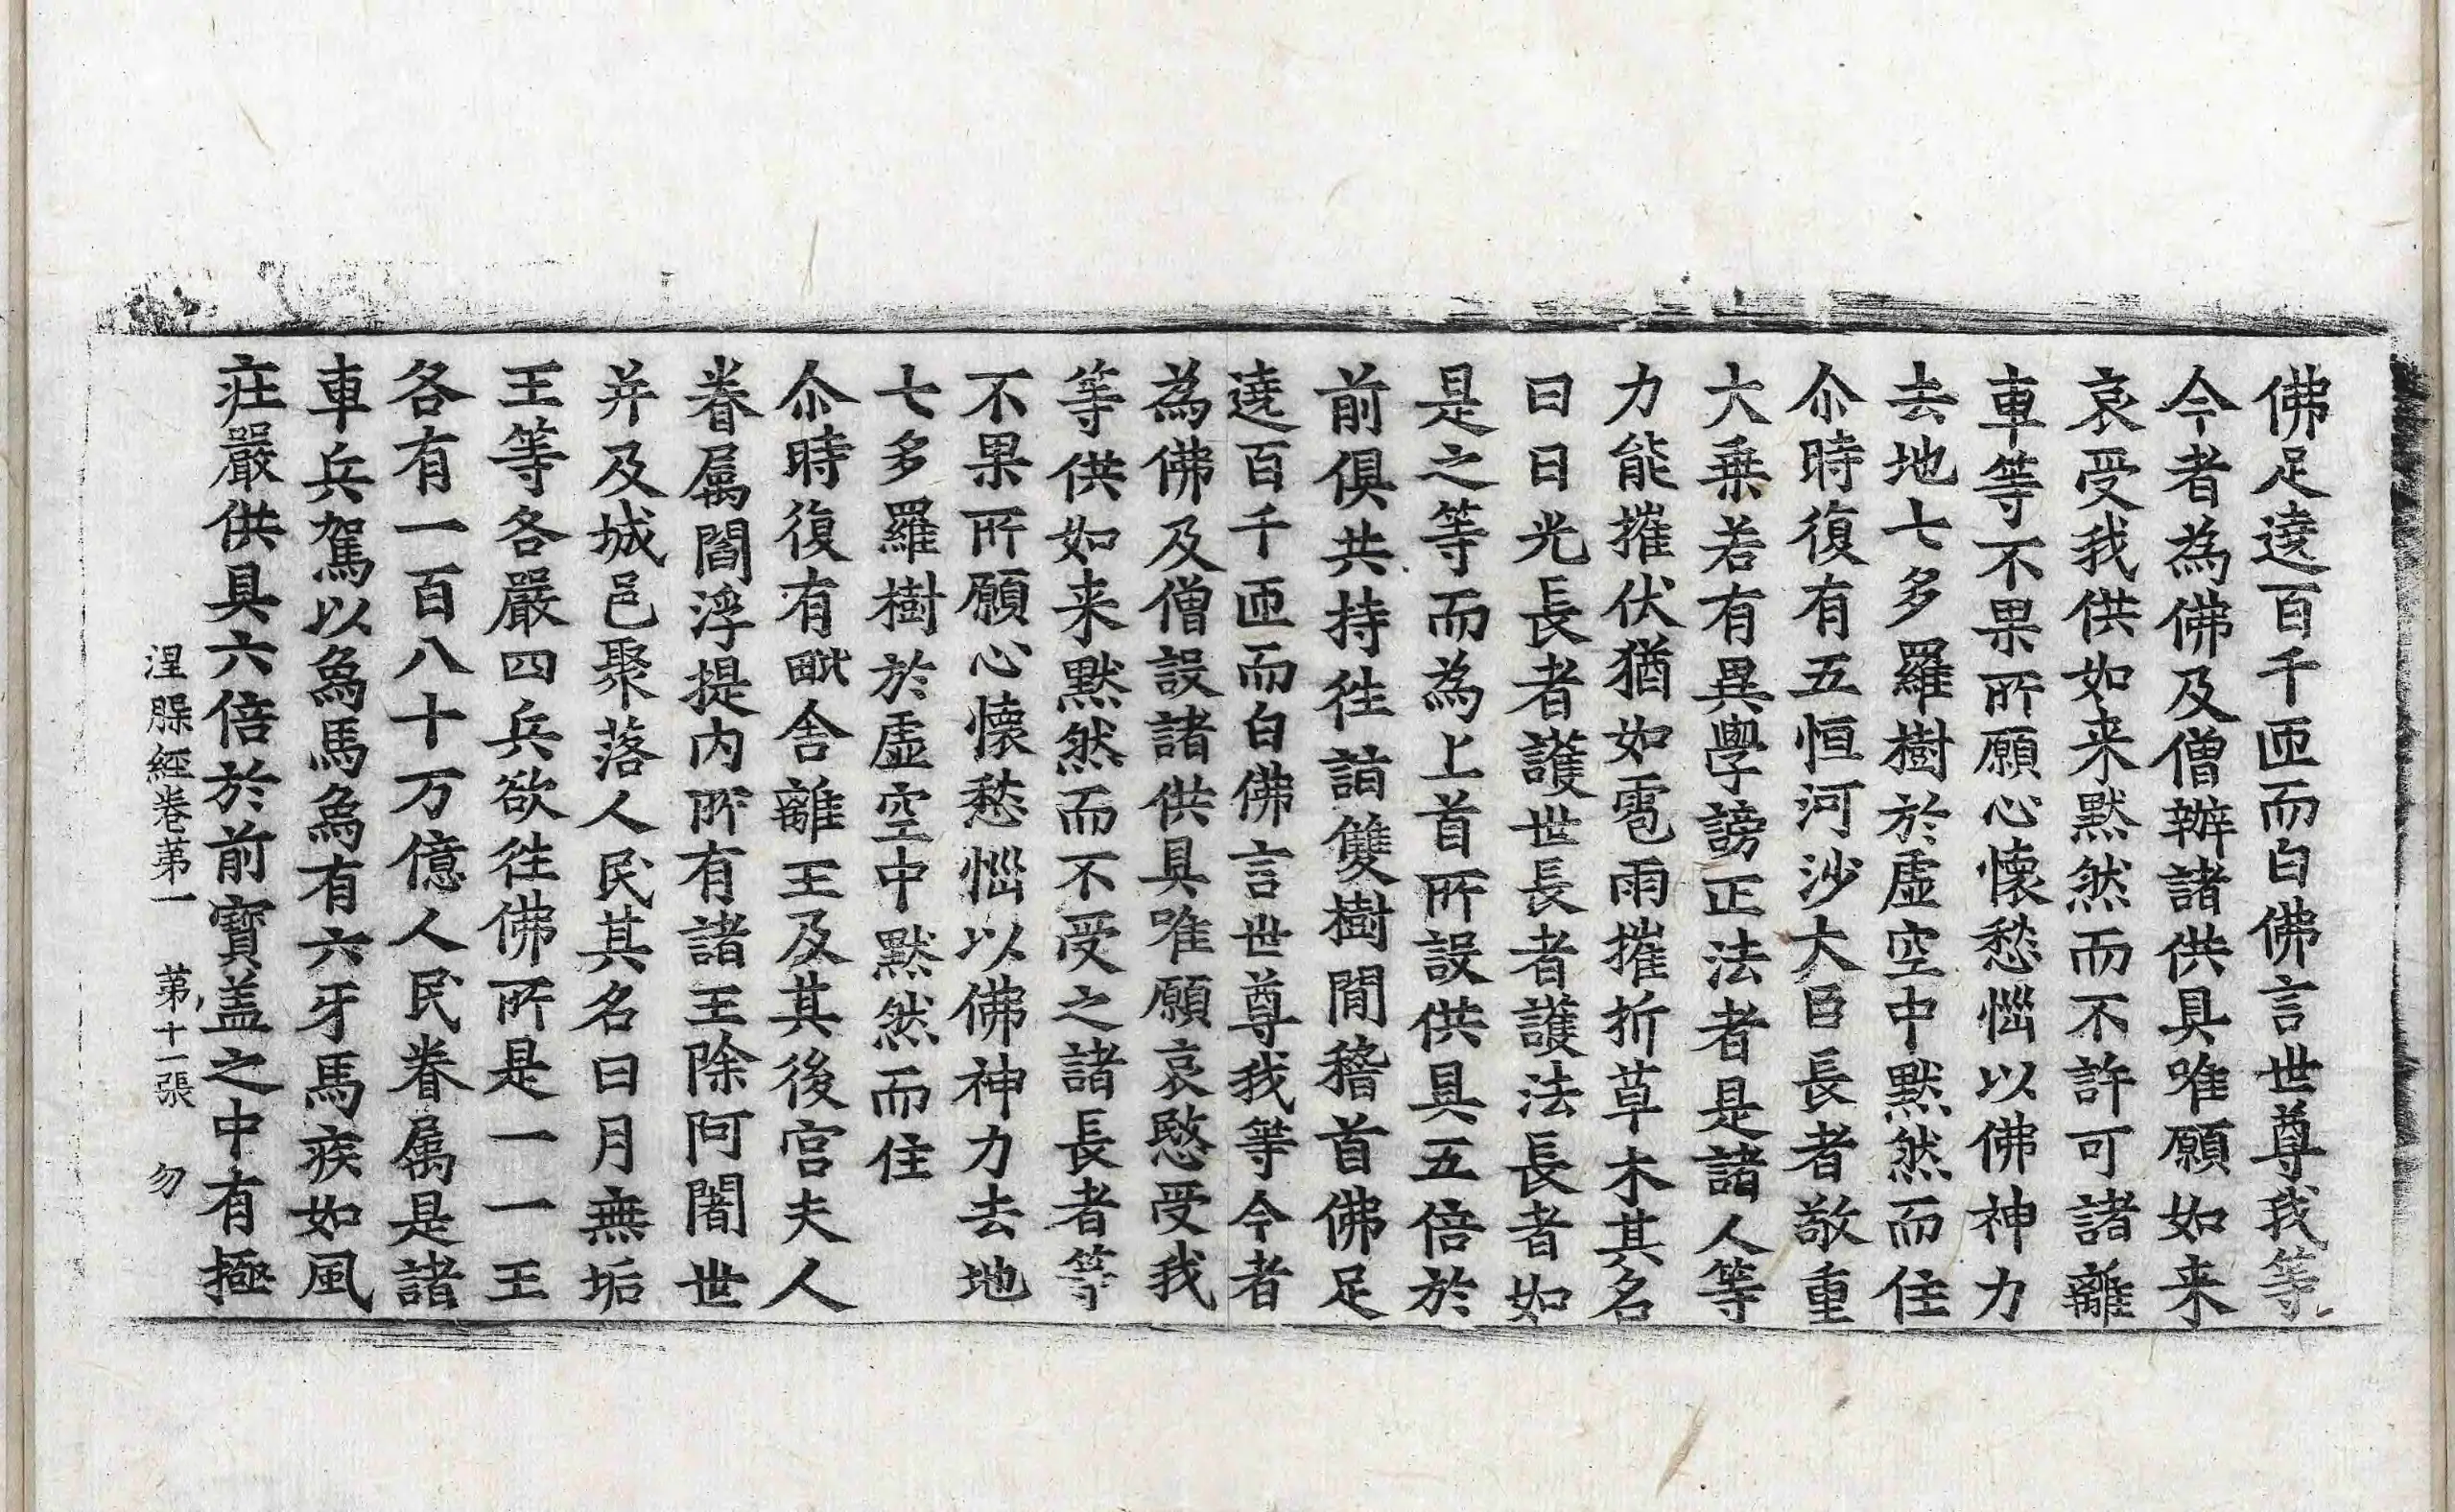 佛足遶百千匝而白佛言世尊我等
今者為佛及僧辦諸供具唯願如来
哀受我供如来黙然而不許可諸離
車等不果所願心懷愁惱以佛神力
去地七多羅樹於虛空中黙然而住
尒時復有五恒河沙大臣長者敬重
大乗若有異學謗正法者是諸人等
力能摧伏猶如雹雨摧折草木其名
曰日光長者護世長者護法長者如
是之等而為上首所設供具五倍於
前俱共持往詣雙樹閒稽首佛足
遶百千匝而白佛言世尊我等今者
為佛及僧設諸供具唯願哀愍受我
等供如来黙然而不受之諸長者等
不果所願心懷愁惱以佛神力去地
七多羅樹於虛空中黙然而住
尒時復有毗舍離王及其後宮夫人
眷屬閻浮提內所有諸王除阿闍世
并及城邑聚落人民其名曰月無垢
王等各嚴四兵欲往佛所是一一王
各有一百八十万億人民眷屬是諸
車兵駕以象馬象有六牙馬疾如風
莊嚴供具六倍於前寶盖之中有極
涅槃經卷苐一　苐十一張　勿